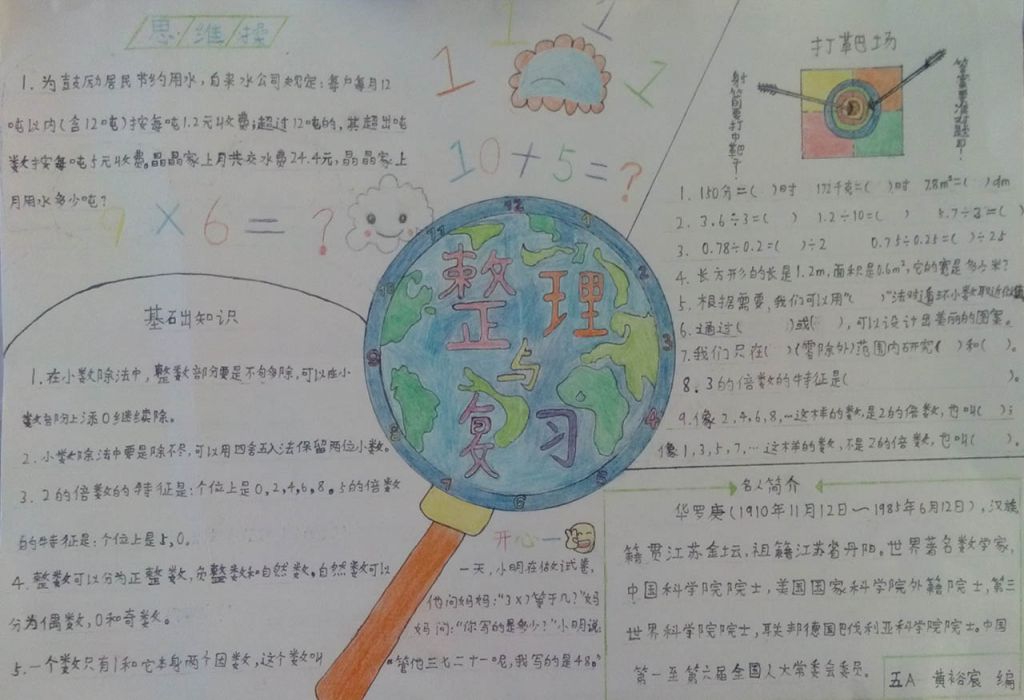 思维操
1.为鼓励居民节约用水,自来水公司规定:每户每月12
吨以内(含12吨)按每吨1.2元收费;超过12吨的,其超出吨
数按每吨5元收费。晶晶家上月共交水费24.4元,晶晶家上
月用水多少吨?
1 1 1 1
10+5=?
9×6=?
打靶场
射箭要打中靶子!
答案要准对题印!
1. 150分=( )时 172千克=( )时 7.8m²=( )dm
2. 3.6÷3=( ) 1.2÷10=( ) 5.7÷3=( )
3. 0.78÷0.2=( )÷2 0.75÷0.25=( )÷25
4. 长方形的长是1.2m,面积是0.6m²,它的宽是多少米?
5. 根据需要,我们可以用“( )”法对循环小数取近似值
6. 通过( )或( ),可以设计出美丽的图案。
7. 我们只在( )(零除外)范围内研究( )和( )。
8. 3的倍数的特征是( )。
9. 像2,4,6,8,…这样的数,是2的倍数,也叫( );
像1,3,5,7,…这样的数,不是2的倍数,也叫( )。
12 1 2 3 4 5 6 7 8 9 10 11
整理
与
复习
基础知识
1.在小数除法中,整数部分要是不够除,可以在小
数部分上添0继续除。
2.小数除法中要是除不尽,可以用四舍五入法保留两位小数。
3. 2的倍数的特征是:个位上是0,2,4,6,8。5的倍数
的特征是:个位上是5,0。
4.整数可以分为正整数,负整数和自然数。自然数可以
分为偶数,0和奇数。
5.一个数只有1和它本身两个因数,这个数叫
开心一
一天,小明在做试卷,
他问妈妈:“3×7等于几?”妈
妈问:“你写的是多少?”小明说:
“管他三七二十一呢,我写的是48。”
名人简介
华罗庚(1910年11月12日～1985年6月12日),汉族
籍贯江苏金坛,祖籍江苏省丹阳。世界著名数学家,
中国科学院院士,美国国家科学院外籍院士,第三
世界科学院院士,联邦德国巴伐利亚科学院院士。中国
第一至第六届全国人大常委会委员。
五A 黄裕宸 编